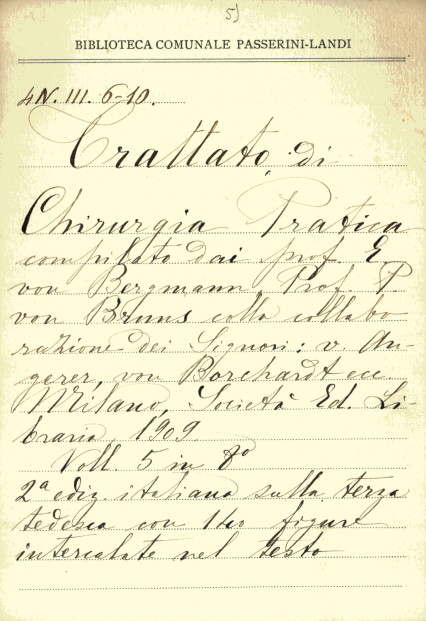 5)
BIBLIOTECA COMUNALE PASSERINI-LANDI
4N. III. 6-10.
Trattato di
Chirurgia Pratica
compilato dai prof. E.
von Bergmann Prof. P.
von Bruns colla collabo
razione dei Signori: v. An-
gerer, von Borchardt ecc
Milano, Società Ed. Li-
braria 1909
Voll. 5 in 8°
2ª ediz. italiana sulla terza
tedesca con figure
intercalate nel testo